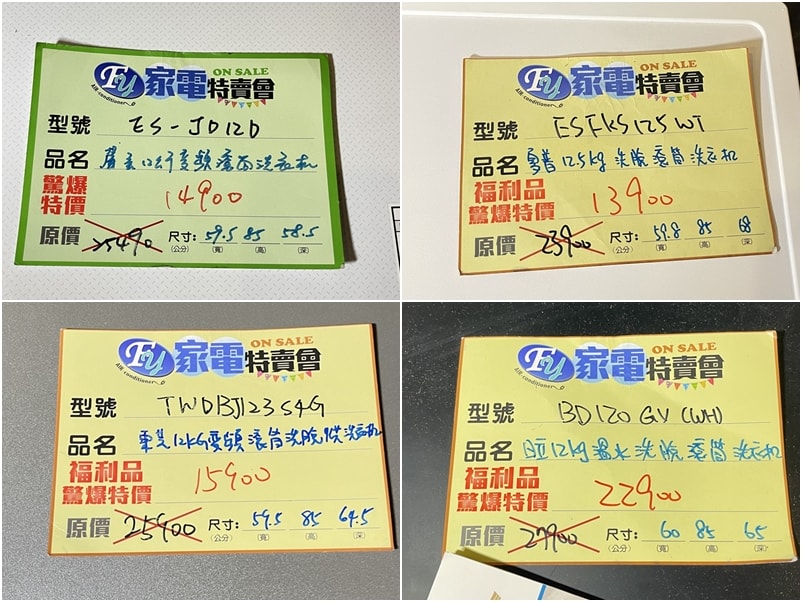 Fy 家電特賣會 ON SALE
AIR conditioner
型號 ES-JD12D
品名 聲寶12公斤變頻滾筒洗衣机
驚爆特價 14900
原價 25490 尺寸: 59.5 85 58.5
(公分) (寬) (高) (深)
Fy 家電特賣會 ON SALE
AIR conditioner
型號 ESFKS125WT
品名 夏普12.5kg 洗脫滾筒洗衣机
福利品
驚爆特價 13900
原價 23900 尺寸: 59.8 85 68
(公分) (寬) (高) (深)
Fy 家電特賣會 ON SALE
AIR conditioner
型號 TWDBJ123S4G
品名 東芝12KG變頻滾筒洗脫烘洗衣机
福利品
驚爆特價 15900
原價 25900 尺寸: 59.5 85 64.5
(公分) (寬) (高) (深)
Fy 家電特賣會 ON SALE
AIR conditioner
型號 BD120GV(WH)
品名 日立12kg溫水洗脫滾筒洗衣机
福利品
驚爆特價 22900
原價 27900 尺寸: 60 85 65
(公分) (寬) (高) (深)